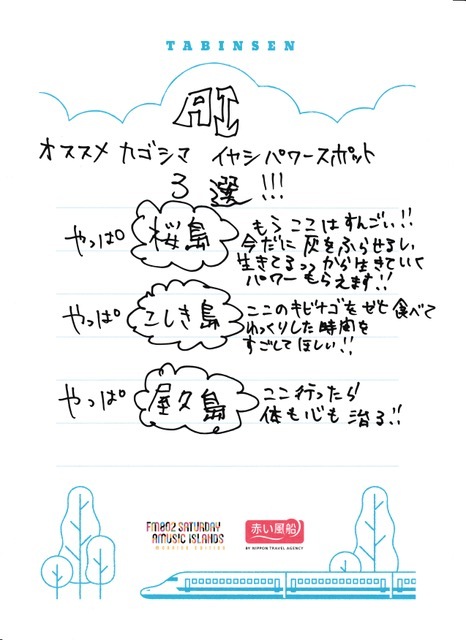 TABINSEN
AI
オススメ カゴシマ イヤシパワースポット
3 選!!!
やっぱ 桜島 もう ここはすんごい!!
今だに 灰をふらせるし
生きてるっつから生きていく
パワー もらえます!!
やっぱ こしき島 ここのキビナゴをぜひ食べて
ゆっくりした時間を
すごしてほしい!!
やっぱ 屋久島 ここ行ったら
体も心も 治る!!
FM802 SATURDAY
AMUSIC ISLANDS
MORNING EDITION
赤い風船
BY NIPPON TRAVEL AGENCY